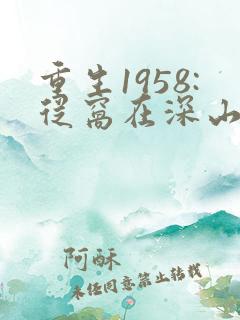 重生1958:
从窝在深山
阿酥
未经同意禁止转载